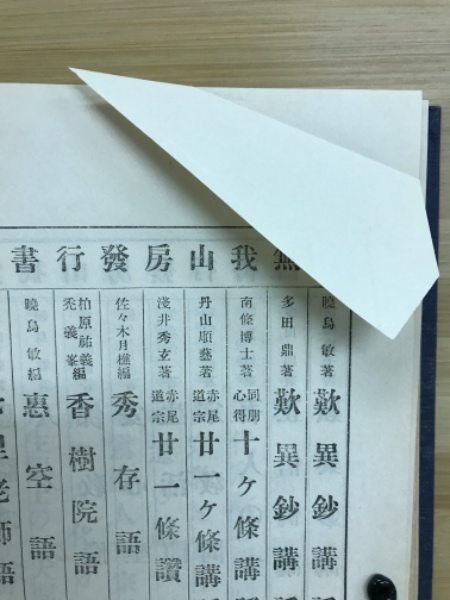 無我山房發行書
曉烏敏著 歎異鈔講
多田鼎著 歎異鈔講
南條博士著 同朋心得 十ケ條講
丹山順藝著 赤尾道宗 廿一ケ條講
淺井秀玄著 赤尾道宗 廿一條讃
佐々木月樵編 秀存語
柏原祐義 禿義峯編 香樹院語
曉烏敏編 惠空語
老師語